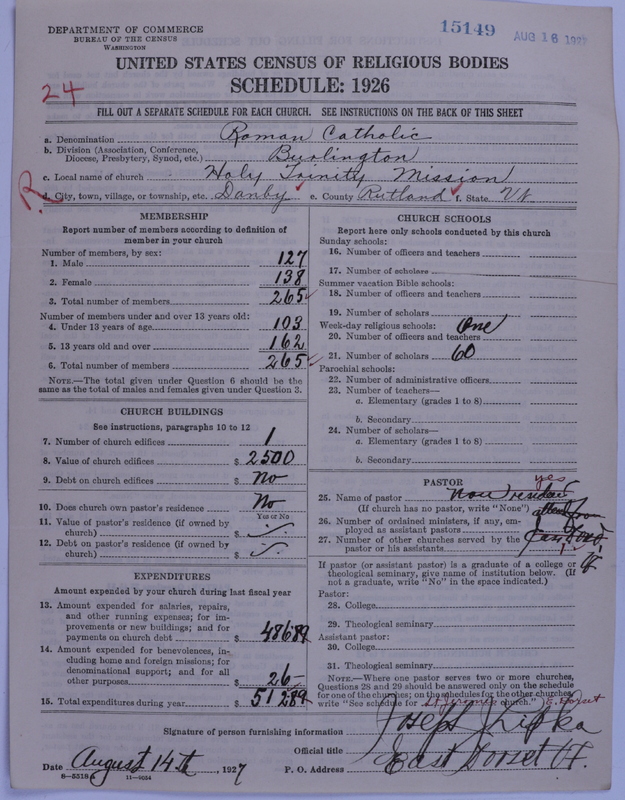 DEPARTMENT OF COMMERCE
BUREAU OF THE CENSUS
WASHINGTON
15149
AUG 16 1927
UNITED STATES CENSUS OF RELIGIOUS BODIES
SCHEDULE: 1926
24
FILL OUT A SEPARATE SCHEDULE FOR EACH CHURCH. SEE INSTRUCTIONS ON THE BACK OF THIS SHEET
a. Denomination Roman Catholic
b. Division (Association, Conference,
Diocese, Presbytery, Synod, etc.) Burlington
c. Local name of church Holy Trinity Mission
R
d. City, town, village, or township, etc. Danby e. County Rutland f. State Vt
MEMBERSHIP
Report number of members according to definition of
member in your church
Number of members, by sex:
1. Male 127
2. Female 138
3. Total number of members 265
Number of members under and over 13 years old:
4. Under 13 years of age 103
5. 13 years old and over 162
6. Total number of members 265
NOTE.—The total given under Question 6 should be the
same as the total of males and females given under Question 3.
CHURCH BUILDINGS
See instructions, paragraphs 10 to 12
7. Number of church edifices 1
8. Value of church edifices $ 2500
9. Debt on church edifices $ No
10. Does church own pastor's residence No
Yes or No
11. Value of pastor's residence (if owned by
church) $
12. Debt on pastor's residence (if owned by
church) $
EXPENDITURES
Amount expended by your church during last fiscal year
13. Amount expended for salaries, repairs,
and other running expenses; for im-
provements or new buildings; and for
payments on church debt $ 486 89
14. Amount expended for benevolences, in-
cluding home and foreign missions; for
denominational support; and for all
other purposes $ 26 —
15. Total expenditures during year $ 512 89
CHURCH SCHOOLS
Report here only schools conducted by this church
Sunday schools:
16. Number of officers and teachers
17. Number of scholars
Summer vacation Bible schools:
18. Number of officers and teachers
19. Number of scholars
Week-day religious schools: One
20. Number of officers and teachers
21. Number of scholars 60
Parochial schools:
22. Number of administrative officers
23. Number of teachers—
a. Elementary (grades 1 to 8)
b. Secondary
24. Number of scholars—
a. Elementary (grades 1 to 8)
b. Secondary
PASTOR
yes
25. Name of pastor Non resident
(If church has no pastor, write "None") from
26. Number of ordained ministers, if any, em-
ployed as assistant pastors
27. Number of other churches served by the East Dorset
pastor or his assistants 1
If pastor (or assistant pastor) is a graduate of a college or
theological seminary, give name of institution below. (If
not a graduate, write "No" in the space indicated.)
Pastor:
28. College
29. Theological seminary
Assistant pastor:
30. College
31. Theological seminary
NOTE.—Where one pastor serves two or more churches,
Questions 28 and 29 should be answered only on the schedule
for one of the churches; on the schedules for the other churches,
write "See schedule for St Jeromes church." E. Dorset
Signature of person furnishing information Joseph Lipka
Official title
Date August 14th, 1927 P. O. Address East Dorset Vt.
8—5518 A 11—9034